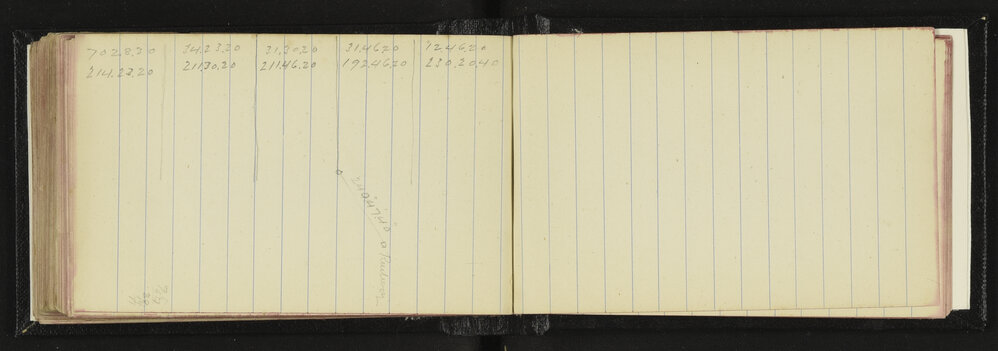 702.8.30 34.23.20 31.30.20 31.46.20 12.46.20
214.23.20 211.30.20 211.46.20 192.46.20 230.20.40